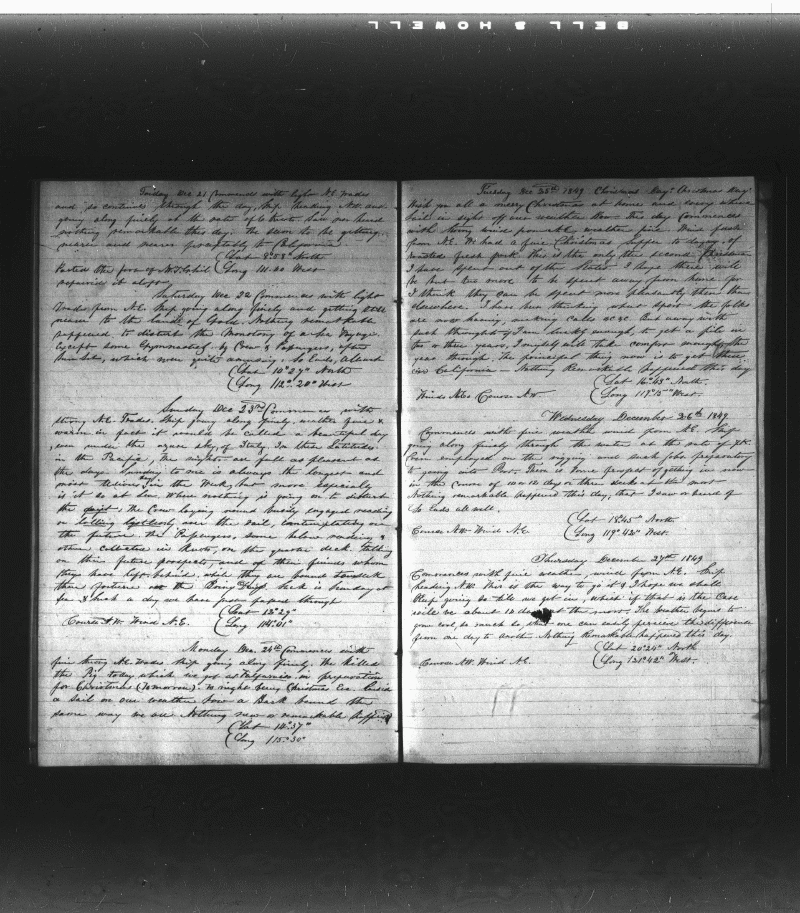 BELL & HOWELL
Friday Dec 21 Commences with light N.E. trades
and so continues through the day, Ship heading N.W. and
going along finely at the rate of 6 knots. Saw nor heard
nothing remarkable this day. We seem to be getting
nearer and nearer prosperly to California
Lat 8°.58 North
Parted the fore of N.T.
Long 111.20 West
repaired it also
Saturday Dec 22 Commences with light
Trades from N.E. Ship going along finely and getting still
nearer to the land of Gold. Nothing remarkable
happened to disturb the Monotony of a Sea Voyage
Except some by Crew & Passengers, after
, which were quite amusing. So Ends, all well
Lat 10°27" North
Long 112°.20" West
Sunday Dec 23rd Commences with
strong N.E. Trades. Ship going along finely, weather fine &
warm in fact it would be called a beautiful day
even under the azure sky of Italy. In these Latitudes
in the Pacific, the nights are full as pleasant as
the days. Sunday to me is always the longest and
most tedious day in the Week, but more especially
is it so at Sea where nothing is going on to disturb
the quiet. The Crew laying round busily engaged reading
or lolling over the rail, contemplating on
the future. The Passengers, some below reading &
others collected in knots, on the quarter deck talking
on their future prospects, and of their friends whom
they have left behind, while they are bound to seek
their fortune on the . Such is Sunday at
Sea & such a day we have just passed through
Lat 12°29"
Course N.W. Wind N.E.
Long 114°.01"
Monday Dec. 24th Commences with
fine strong N.E. trades. Ship going along finely. We killed
the Pig today which we got at Valparaiso in preparation
for Christmas (Tomorrow). To night being Christmas Eve.
a Sail on our weather bow a Bark bound the
same way we are. Nothing new or remarkable happened
Lat 14°.37"
Long 115°.30"
Tuesday Dec 25th 1849 Christmas Day. Christmas Day.
Wish you all a merry Christmas at home and every where
Sail in sight off our weather bow. This day Commences
with strong winds pleasant weather fine. Wind fresh
from N.E. We had a fine Christmas Supper to day of
roasted fresh pork. This is the only the second Christmas
I have spent out of the States. I hope there will
be but two more to be spent away from home for
I think they can be spent more pleasantly there than
elsewhere. I have been thinking what sport the folks
are now having, making calls &c &c. But away with
such thoughts if I am lucky enough, to get a pile in
two or three years, I might will take comfort enough the
year through. The principal thing now is to get there
in California — Nothing Remarkable happened this day
Lat 16°.43" North.
Winds Course N.W.
Long 117°.15" West.
Wednesday December 26th 1849
Commences with fine weather wind from N.E. Ship
going along finely through the water at the rate of 7 K.
Crew employed on the rigging and such jobs preparatory
to going into Port. There is some prospect of getting in now
in the course of 10 or 12 days or three weeks at the most
Nothing remarkable happened this day, that I saw or heard of
So Ends all well.
Lat 18°.45" North
Course N.W. Wind N.E.
Long 119°.42" West.
Thursday December 27th 1849
Commences with fine weather, wind from N.E. Ship
heading N.W. This is the way to go it & I hope we shall
keep going so till we get in, which if that is the Case
will be about 12 days at the most. The weather begins to
grow cool, so much so that one can easily perceive the difference
from one day to another. Nothing Remarkable happened this day.
Lat 20°24" North
Course N.W. Wind N.E.
Long 121°42" West.